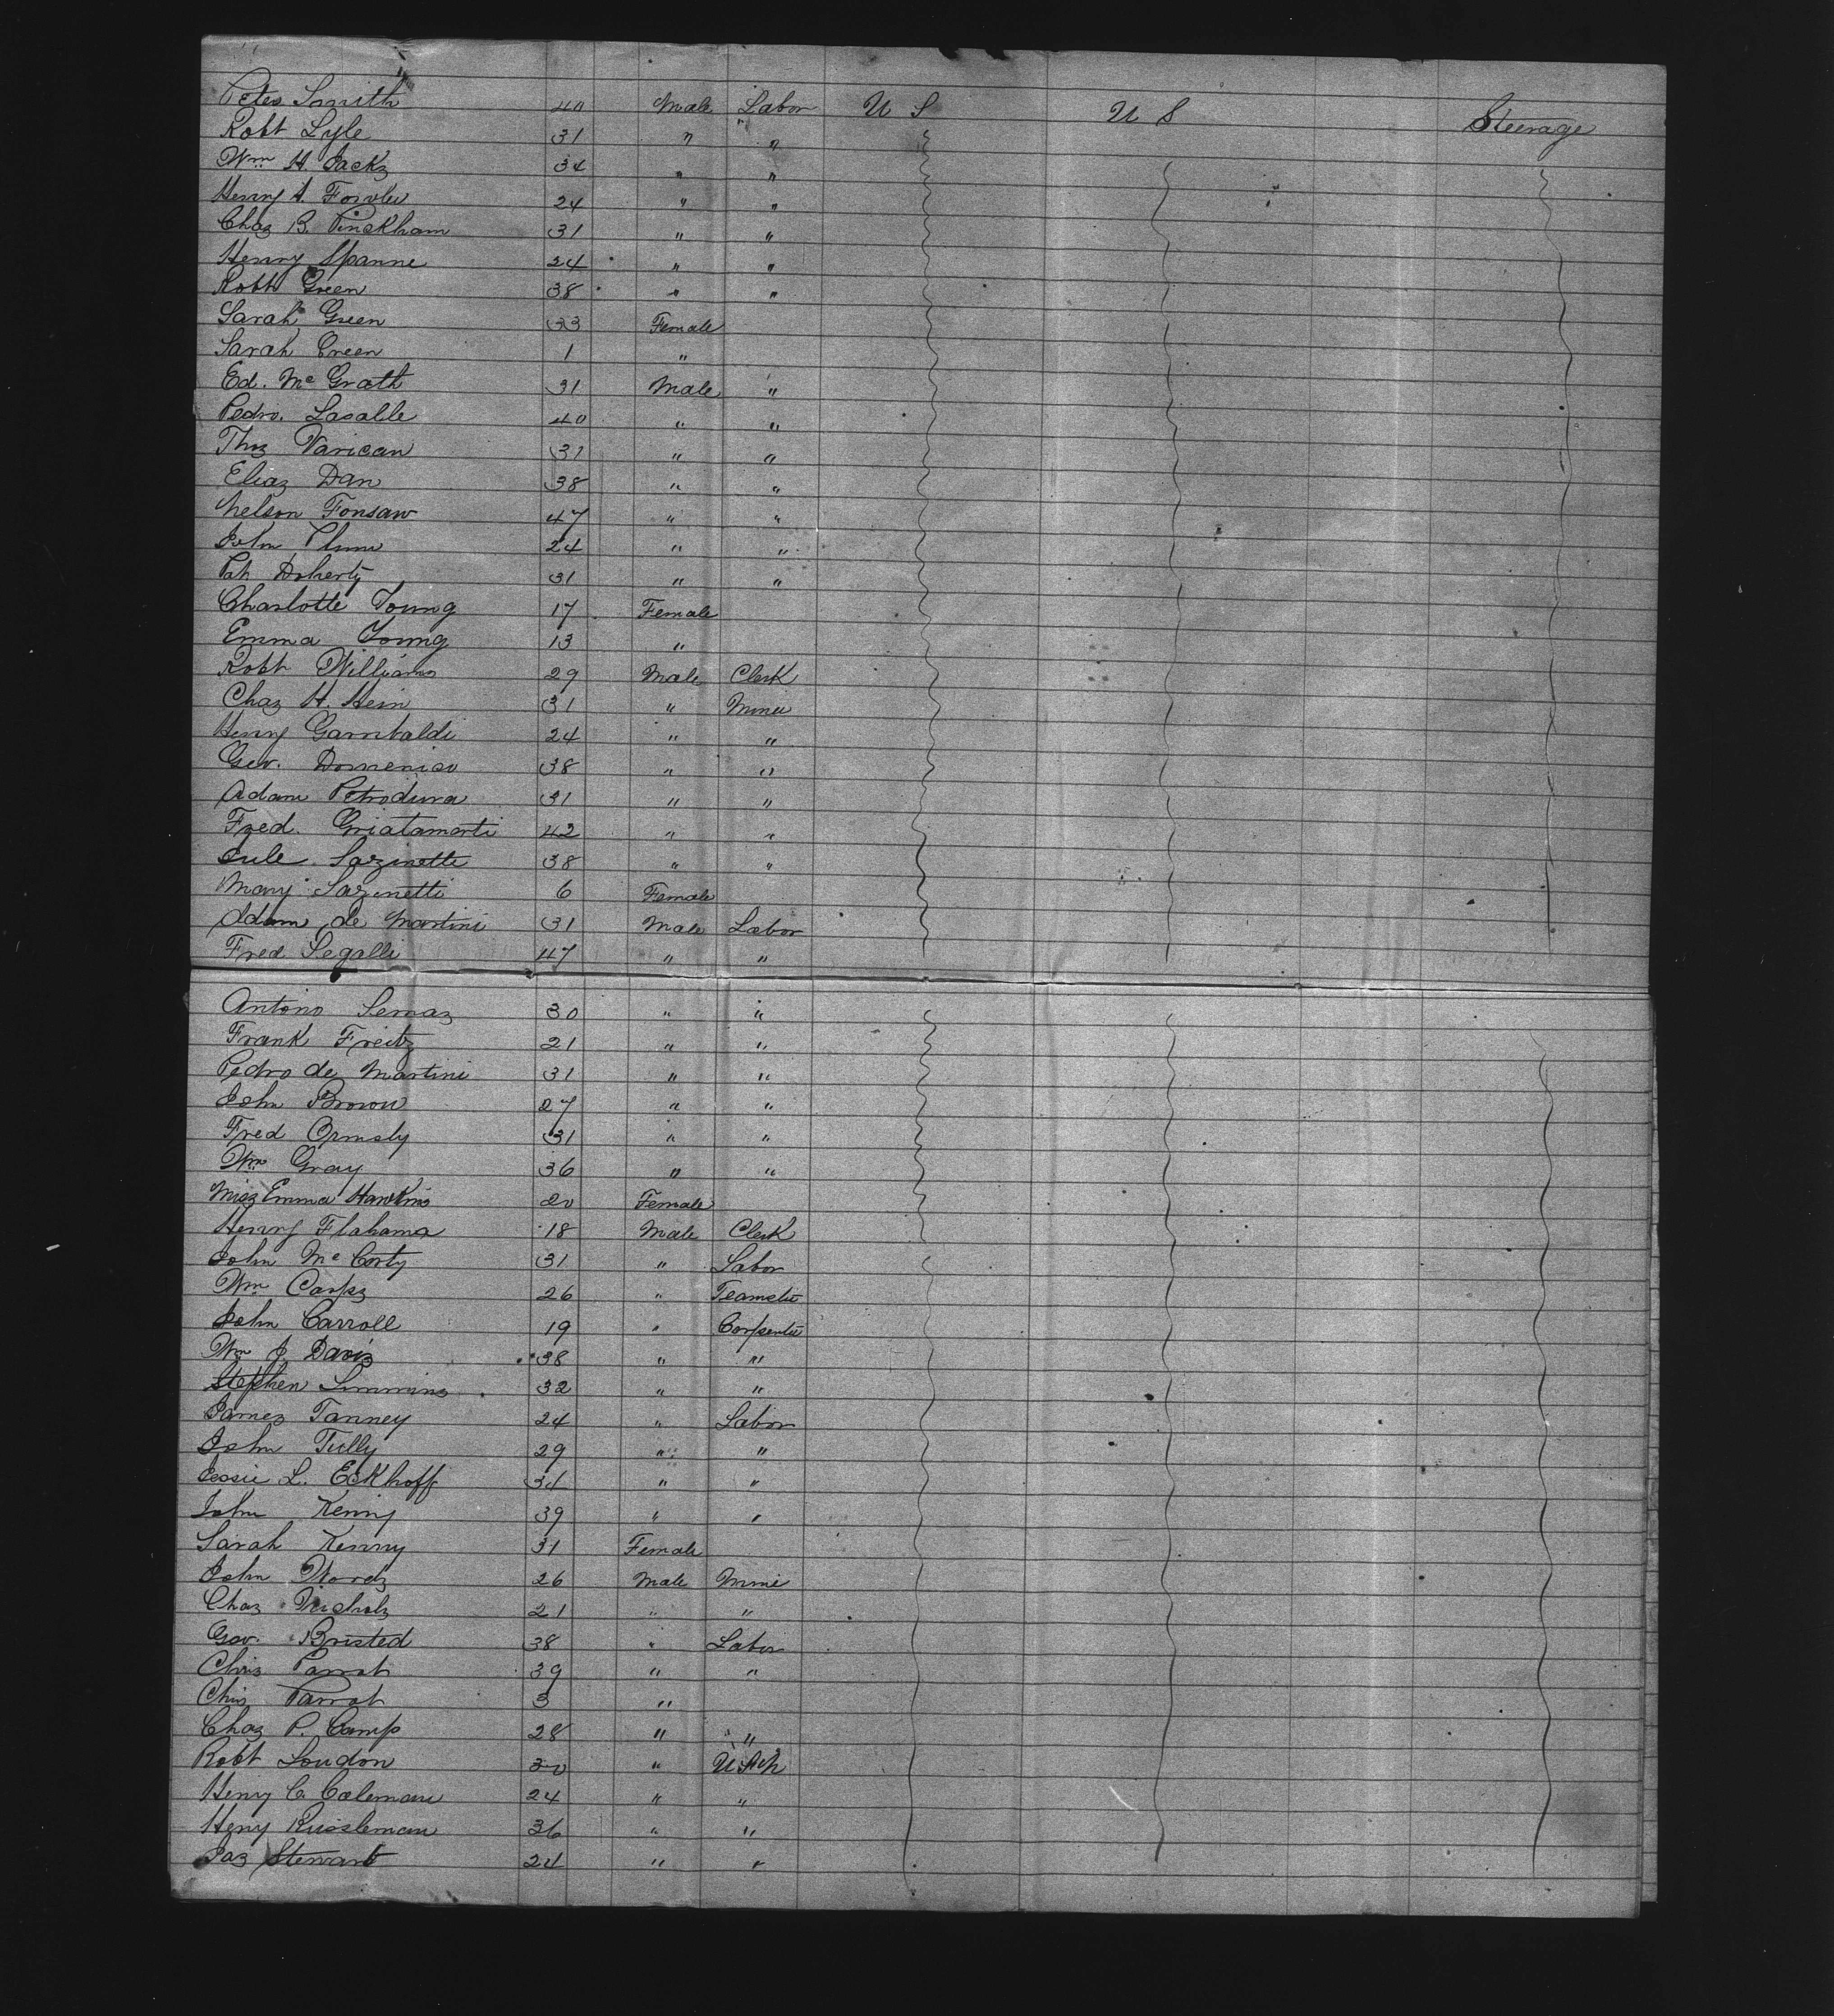 Peter Smith 40 Male Labor U S U S Steerage
Robt Lyle 31 " "
Wm H. Jacks 34 " "
Henry A. Fowler 24 " "
Chas B. Pinckham 31 " "
Henry Spanne 24 " "
Robt Green 38 " "
Sarah Green 33 Female
Sarah Green 1 "
Ed. Mc Grath 31 Male "
Pedro. Lasalle 40 " "
Thos Varican 31 " "
Elias Dan 38 " "
Nelson Fonsaw 47 " "
John 24 " "
Pat Doherty 31 " "
Charlotte Young 17 Female
Emma Young 13 "
Robt Williams 29 Male Clerk
Chas H. Hein 31 " Miner
Henry Garribaldi 24 " "
Geo. Domenico 38 " "
Adam Petrodura 31 " "
Fred. Griatamarti 42 " "
Jule Sazinetti 38 " "
Mary Sazinetti 6 Female
Adam de Martini 31 Male Labor
Fred Segalli 47 " "
Antono Semas 30 " "
Frank Freitz 21 " "
Pedro de Martini 31 " "
John Brown 27 " "
Fred Ormsly 31 " "
Wm Gray 36 " "
Miss Emma Hawkins 20 Female
Henry Flahama 18 Male Clerk
John Mc Carty 31 " Labor
Wm Carps 26 " Teamster
John Carroll 19 " Carpenter
Wm J Davis 38 " "
Stephen Simmins 32 " "
James Tanney 24 " Labor
John Tully 29 " "
Jessie L. Eckhoff 34 " "
John Kenny 39 " "
Sarah Kenny 31 Female
John Words 26 Male Miner
Chas 21 " "
Geo. Bristed 38 " Labor
Chris Parrot 39 " "
Chris Parrot 3 "
Chas P. Camp 28 " "
Robt Loudon 30 "
Henry C. Coleman 24 " "
Heny Russleman 36 " "
Jas Stewart 24 " "